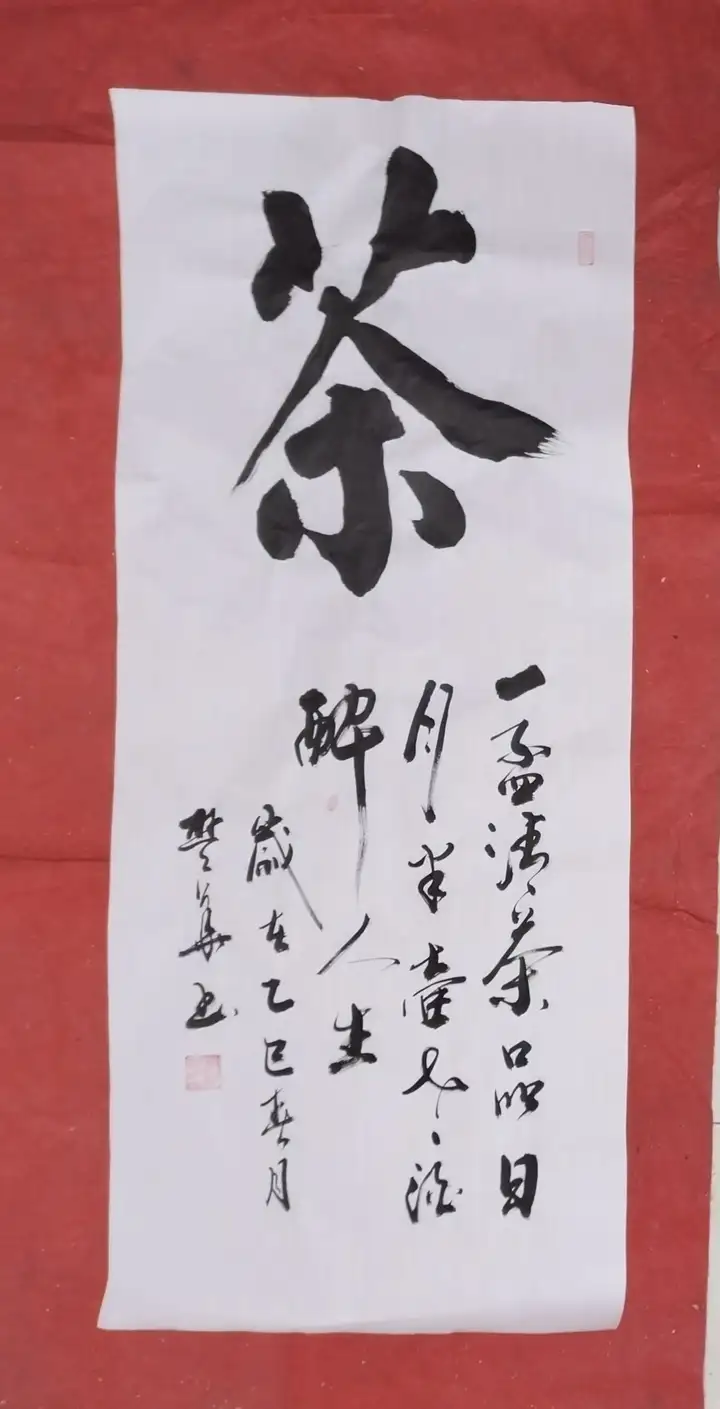 茶
一盃清茶品日
月半壺老酒
醉人生
歲在乙巳春月
華书